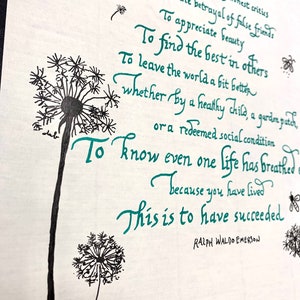 honest critics
betrayal of false friends
To appreciate beauty
To find the best in others
To leave the world a bit better
whether by a healthy child, a garden patch
or a redeemed social condition
To know even one life has breathed
because you have lived
This is to have succeeded
RALPH WALDO EMERSON